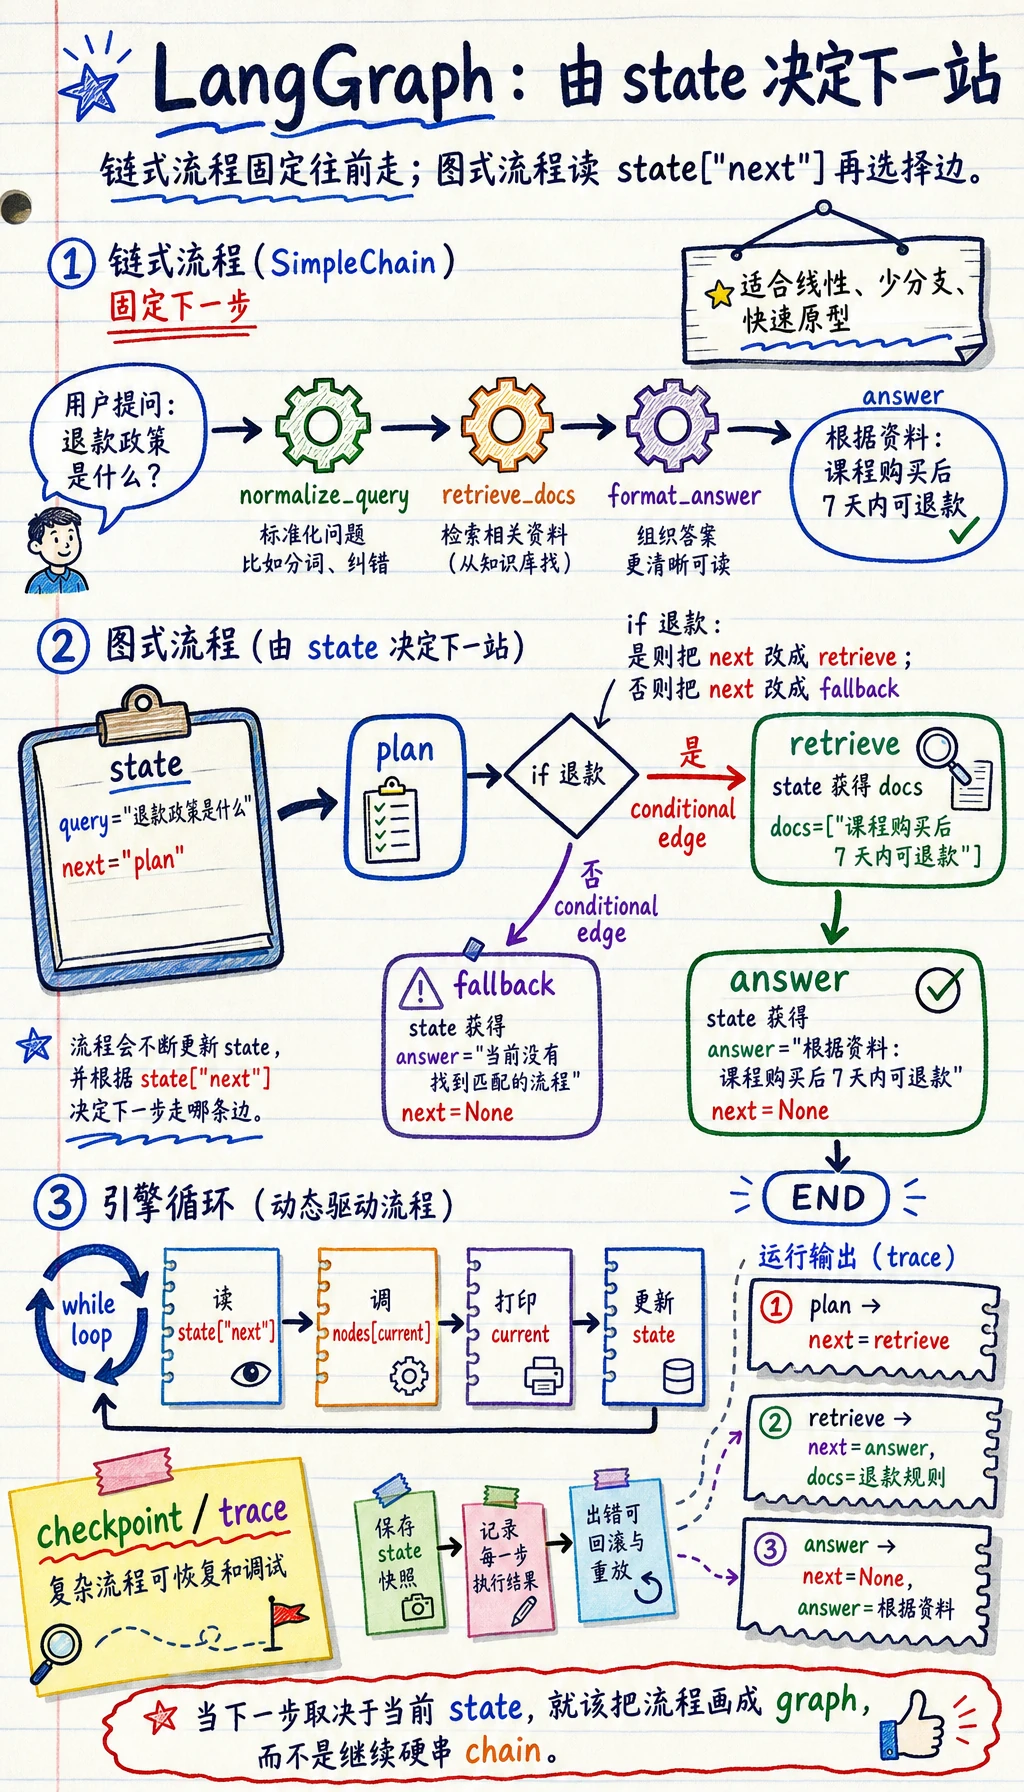 LangGraph：由 state 决定下一站
链式流程固定往前走；图式流程读 state["next"] 再选择边。
① 链式流程（SimpleChain）
固定下一步
适合线性、少分支、
快速原型
用户提问：
退款政策
是什么？
normalize_query
标准化问题
比如分词、纠错
retrieve_docs
检索相关资料
（从知识库找）
format_answer
组织答案
更清晰可读
answer
根据资料：
课程购买后
7 天内可退款
② 图式流程（由 state 决定下一站）
if 退款：
是则把 next 改成 retrieve；
否则把 next 改成 fallback
state
query="退款政策是什么"
next="plan"
plan
if 退款
是
conditional
edge
retrieve
state 获得 docs
docs=["课程购买后
7 天内可退款"]
否
conditional
edge
fallback
state 获得
answer="当前没有
找到匹配的流程"
next=None
answer
state 获得
answer="根据资料：
课程购买后7天内可退款"
next=None
END
流程会不断更新 state，
并根据 state["next"]
决定下一步走哪条边。
③ 引擎循环（动态驱动流程）
while
loop
读
state["next"]
调
nodes[current]
打印
current
更新
state
运行输出（trace）
① plan →
next=retrieve
② retrieve →
next=answer，
docs=退款规则
③ answer →
next=None，
answer=根据资料
checkpoint / trace
复杂流程可恢复和调试
保存
state
快照
记录
每一步
执行结果
出错可
回滚与
重放
当下一步取决于当前 state，就该把流程画成 graph，
而不是继续硬串 chain。